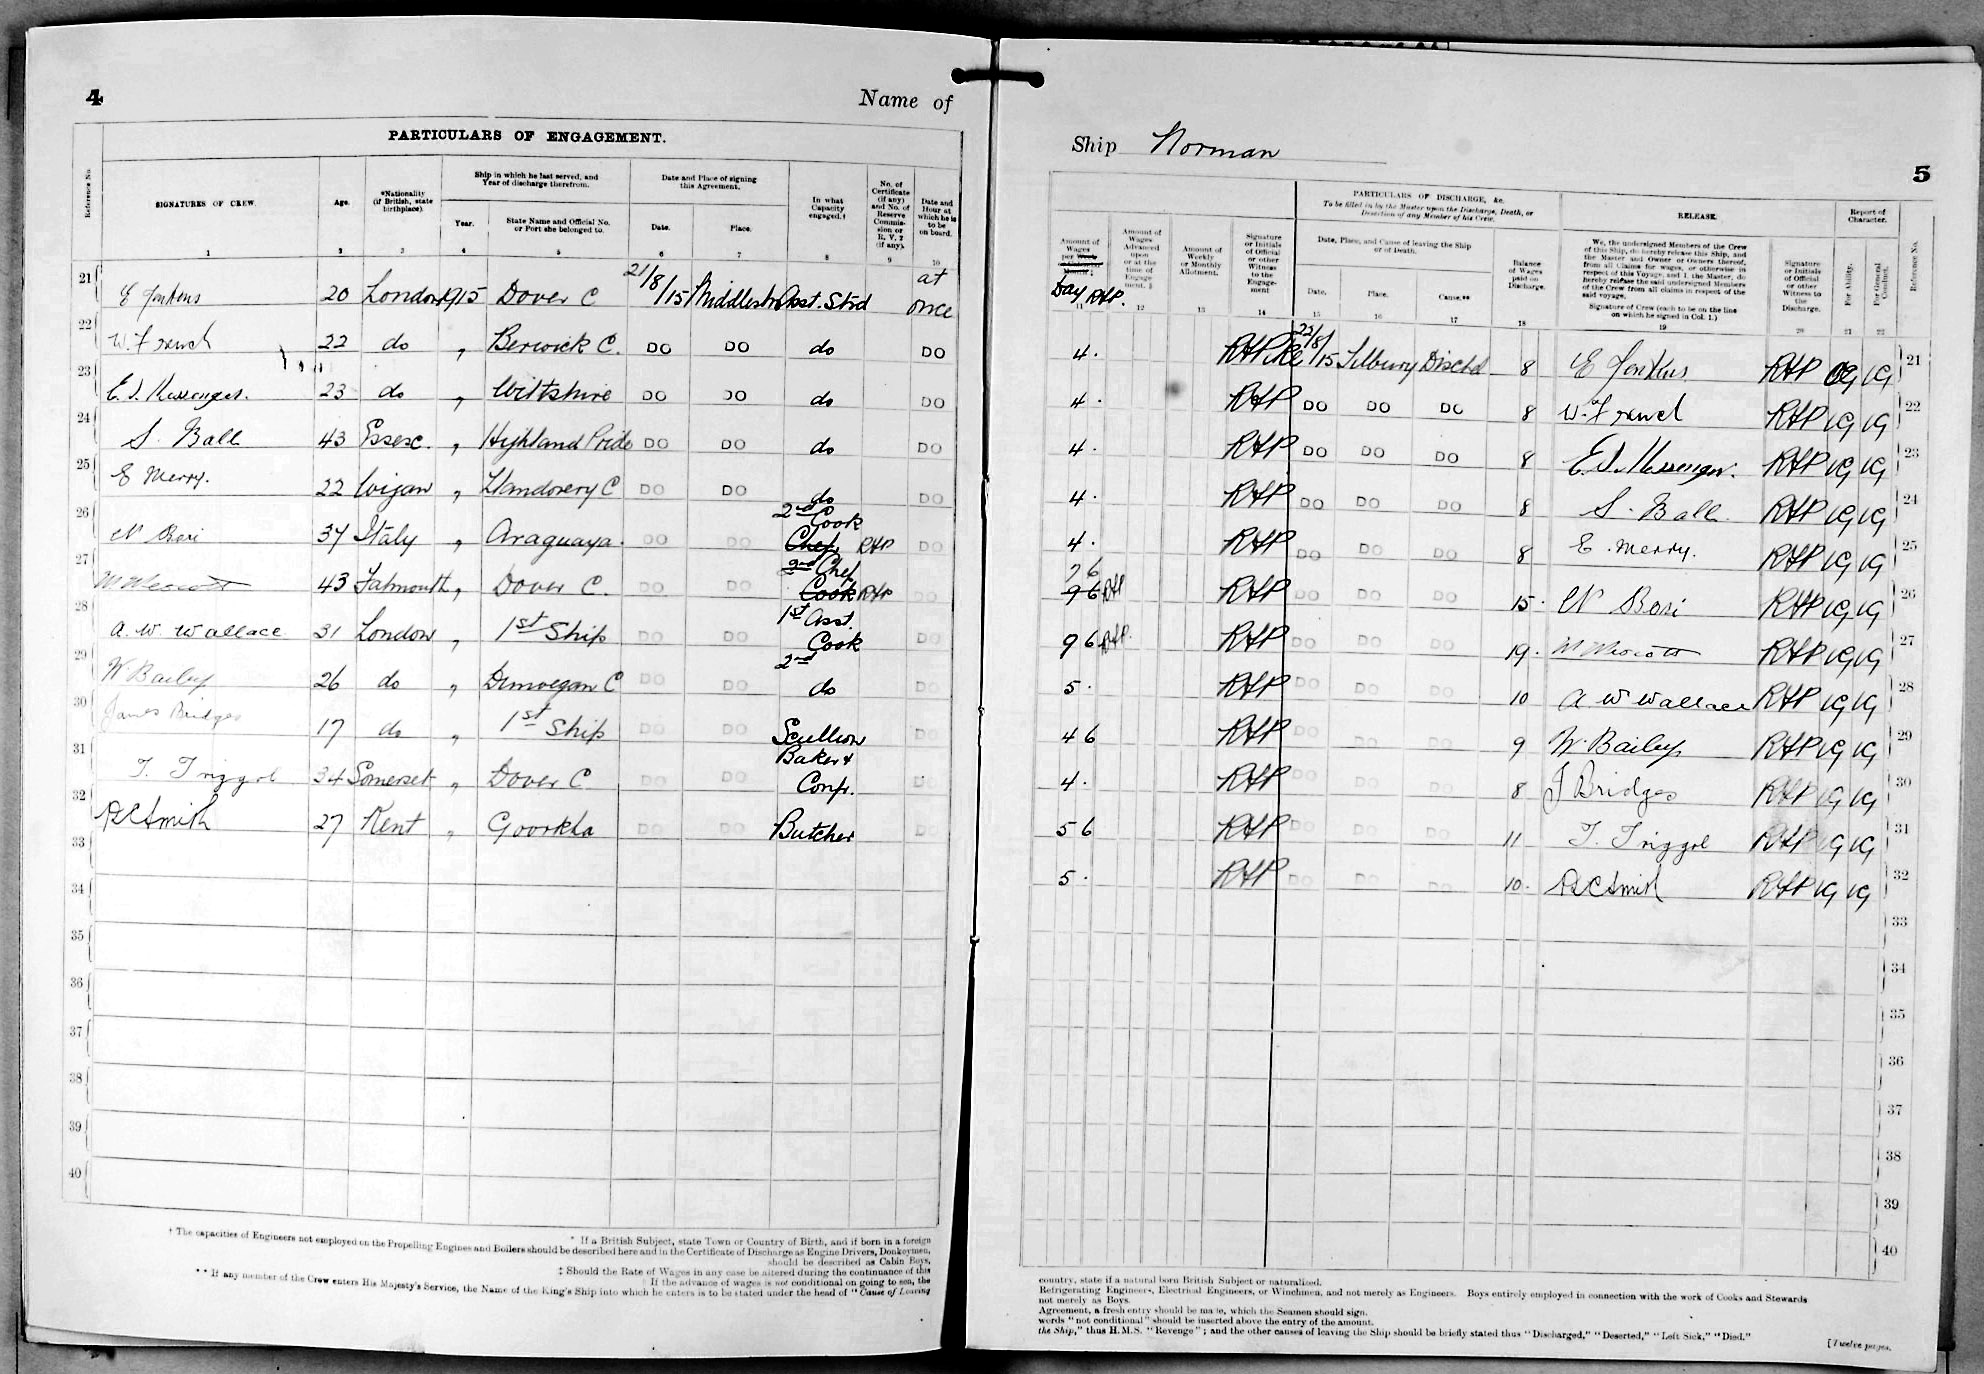 4
Name of
PARTICULARS OF ENGAGEMENT.
Reference No.
SIGNATURES OF CREW.
Age.
*Nationality (if British, state birthplace).
Ship in which he last served, and Year of discharge therefrom.
Year.
State Name and Official No. or Port she belonged to.
Date and Place of signing this Agreement.
Date.
Place.
In what Capacity engaged.†
No. of Certificate (if any) and No. of Reserve Commission or R.V.2 (if any).
Date and Hour at which he is to be on board.
1 2 3 4 5 6 7 8 9 10
21 E Jenkins 20 London 1915 Dover C 21/8/15 Middlesbro Asst. Stwd at once
22 W. French 22 do " Berwick C. DO DO do DO
23 E.J. Messenger. 23 do " Wiltshire DO DO do DO
24 S. Ball 43 Essex. " Highland Pride DO DO do DO
25 E Merry. 22 Wigan " Llandovery C DO DO do DO
26 N Bosi 34 Italy " Araguaya. DO DO 2nd Cook Chef RHP DO
27 43 Falmouth " Dover C. DO DO 2nd Chef Cook RHP DO
28 A. W. Wallace 31 London " 1st Ship DO DO 1st Asst. Cook DO
29 W Bailey 26 do " Dunvegan C DO DO 2nd do DO
30 James Bridges 17 do " 1st Ship DO DO Scullion DO
31 T. Triggol 34 Somerset " Dover C DO DO Baker & Conf. DO
32 RC Smith 27 Kent " Goorkha DO DO Butcher DO
33
34
35
36
37
38
39
40
* If a British Subject, state Town or Country of Birth, and if born in a foreign
† The capacities of Engineers not employed on the Propelling Engines and Boilers should be described here and in the Certificate of Discharge as Engine Drivers, Donkeymen,
should be described as Cabin Boys,
‡ Should the Rate of Wages in any case be altered during the continuance of this
If the advance of wages is not conditional on going to sea, the
** If any member of the Crew enters His Majesty's Service, the Name of the King's Ship into which he enters is to be stated under the head of "Cause of Leaving
Ship Norman
5
PARTICULARS OF DISCHARGE, &c.
To be filled in by the Master upon the Discharge, Death, or Desertion of any Member of his Crew.
RELEASE.
Report of Character.
Amount of Wages per Day RHP.
Amount of Wages Advanced upon or at the time of Engagement.
Amount of Weekly or Monthly Allotment.
Signature or Initials of Official or other Witness to the Engagement
Date, Place, and Cause of leaving the Ship or of Death.
Date.
Place.
Cause.**
Balance of Wages paid on Discharge.
We, the undersigned Members of the Crew of this Ship, do hereby release this Ship, and the Master and Owner or Owners thereof, from all Claims for wages, or otherwise in respect of this Voyage, and I, the Master, do hereby release the said undersigned Members of the Crew from all claims in respect of the said voyage.
Signature of Crew (each to be on the line on which he signed in Col. 1.)
Signature or Initials of Official or other Witness to the Discharge.
For Ability.
For General Conduct.
Reference No.
11 12 13 14 15 16 17 18 19 20 21 22
4. RHP 22/8/15 Tilbury Dischd 8 E Jenkins RHP VG VG 21
4. RHP DO DO DO 8 W. French RHP VG VG 22
4. RHP DO DO DO 8 E.J. Messenger. RHP VG VG 23
4. RHP DO DO DO 8 S. Ball RHP VG VG 24
4. RHP DO DO DO 8 E. Merry. RHP VG VG 25
7 6 9 6 RHP RHP DO DO DO 15. N Bosi RHP VG VG 26
9 6 RHP. RHP DO DO DO 19. RHP VG VG 27
5. RHP DO DO DO 10 A W Wallace RHP VG VG 28
4 6 RHP DO DO DO 9 W. Bailey RHP VG VG 29
4. RHP DO DO DO 8 J Bridges RHP VG VG 30
5 6 RHP DO DO DO 11 T. Triggol RHP VG VG 31
5. RHP DO DO DO 10. RC Smith RHP VG VG 32
33
34
35
36
37
38
39
40
country, state if a natural born British Subject or naturalized.
Refrigerating Engineers, Electrical Engineers, or Winchmen, and not merely as Engineers. Boys entirely employed in connection with the work of Cooks and Stewards
not merely as Boys.
Agreement, a fresh entry should be made, which the Seamen should sign.
words "not conditional" should be inserted above the entry of the amount.
the Ship," thus H.M.S. "Revenge"; and the other causes of leaving the Ship should be briefly stated thus "Discharged," "Deserted," "Left Sick," "Died."
[Twelve pages.